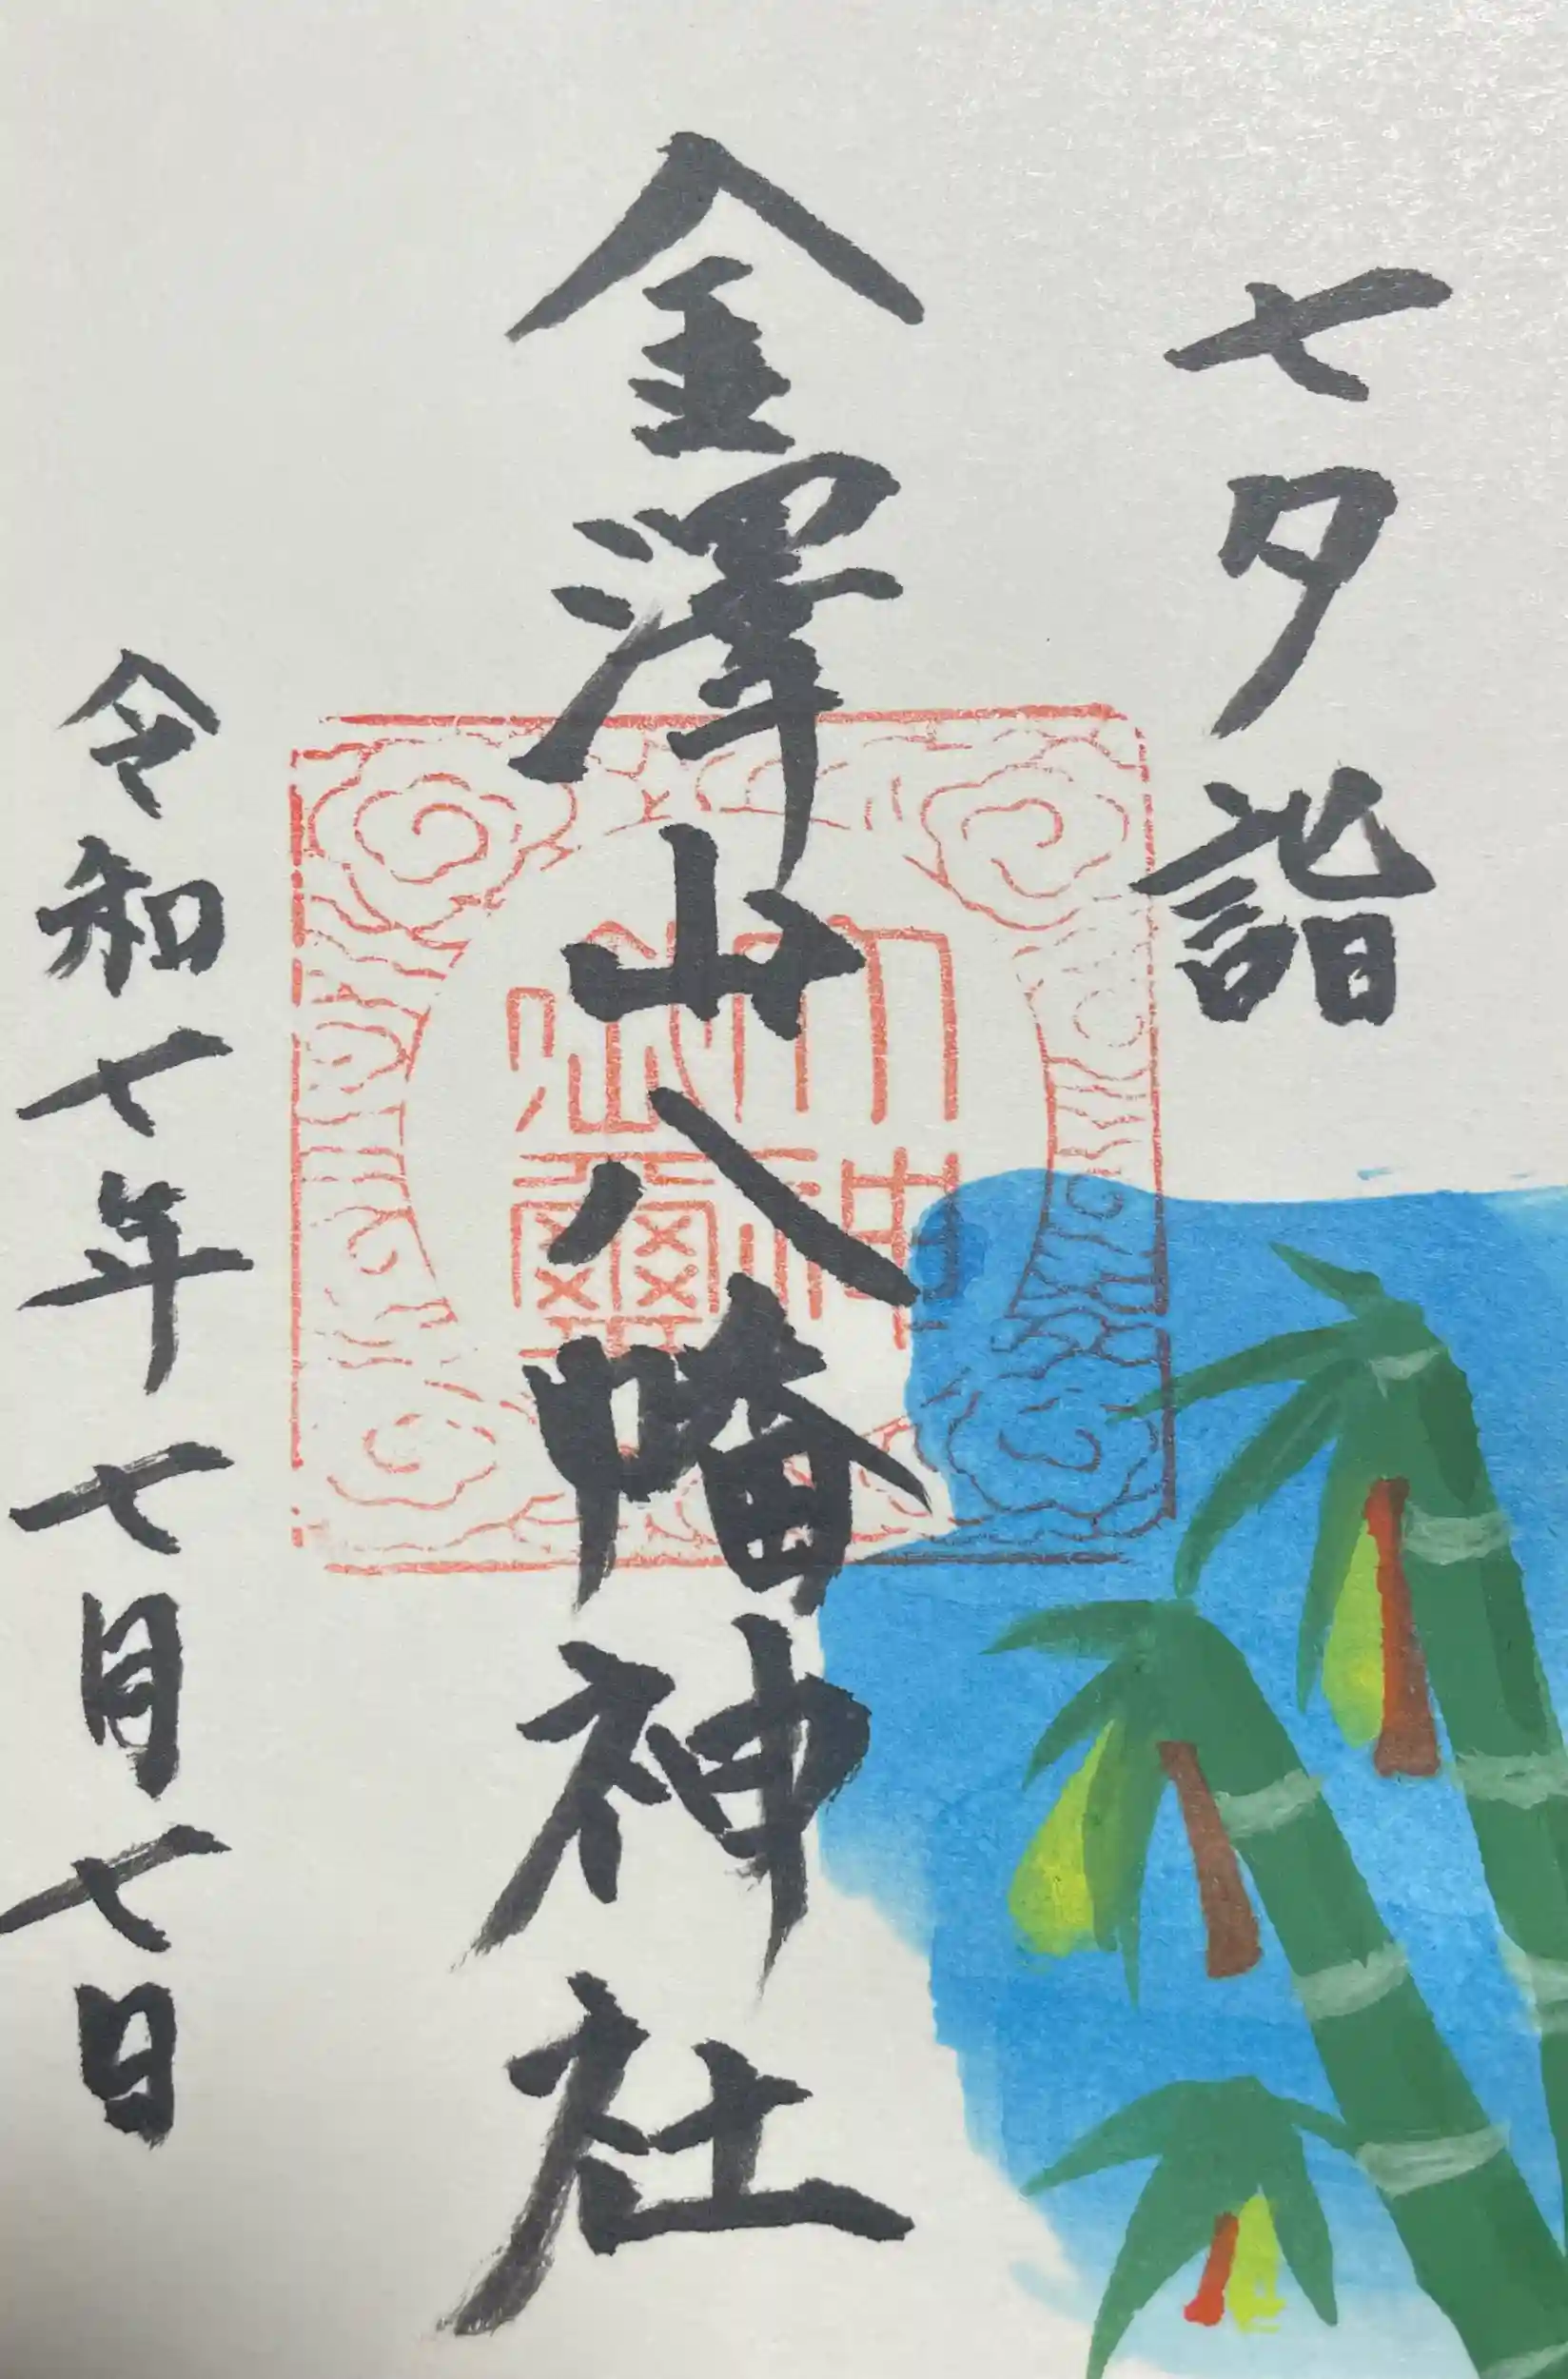 七夕詣
金澤山八幡神社
令和七年七月七日